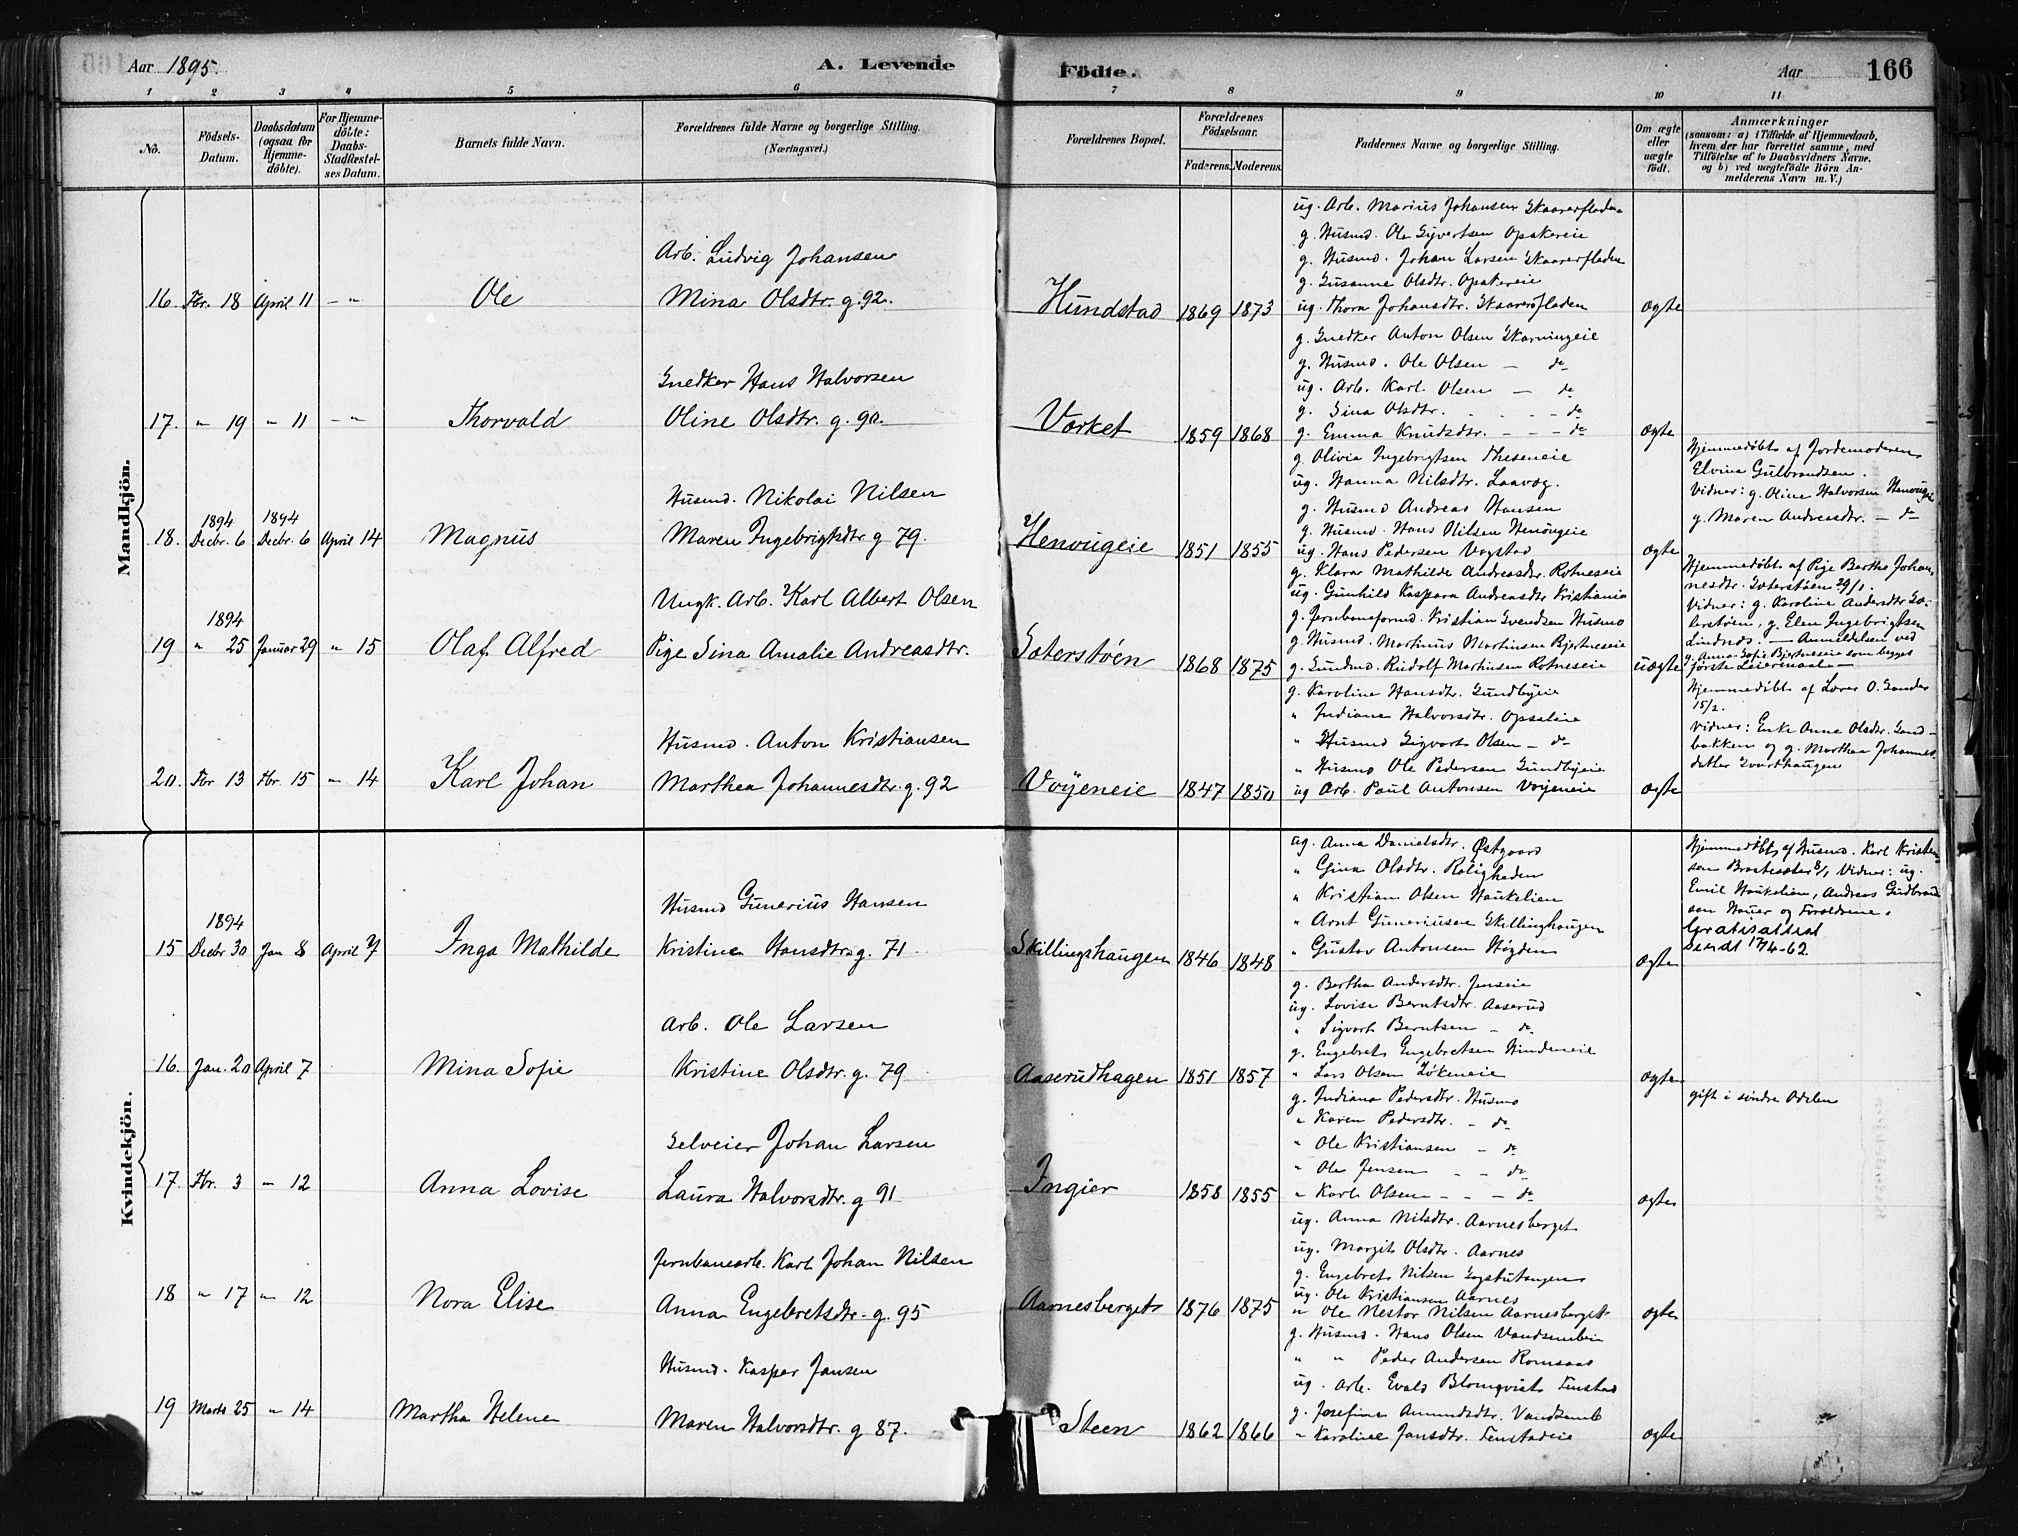 Aar 1895.
A. Levende
Födte.
Aar
166
1 2 3 4 5 6 7 8 9 10 11
No.
Födsels-Datum.
Daabsdatum (ogsaa for Hjemme-döbte).
For Hjemme-döbte: Daabs-Stadfæstel-ses Datum.
Barnets fulde Navn.
Forældrenes fulde Navne og borgerlige Stilling.
(Næringsvei.)
Forældrenes Bopæl.
Forældrenes Födselsaar.
Faderens. Moderens.
Faddernes Navne og borgerlige Stilling.
Om ægte eller uægte födt.
Anmærkninger
(saasom: a) i Tilfælde af Hjemmedaab,
hvem der har forrettet samme, med
Tilföielse af to Daabsvidners Navne.
og b) ved uægtefödte Börn An-
melderens Navn m. V.)
Mandkjön.
16. Fbr. 18 April 11 - "
Ole
Arb. Ludvig Johansen
Mina Olsdtr. g. 92.
Hundstad
1869 1873
ug. Arb. Marius Johansen Skaarerfladen
g. Husmd. Ole Syvertsen Opakereie
g. Husmd. Johan Larsen Skaarerfladen
g. Susanne Olsdtr. Opakereie
ug. Thora Johansdtr. Skaarerfladen
ægte
17. " 19 " 11 - "
Thorvald
Snedker Hans Halvorsen
Oline Olsdtr. g. 90.
Værket
1859 1868
g. Snedker Anton Olsen Skarningeie
g. Husmd. Ole Olsen - do
ug. Arb. Karl Olsen - do
g. Sina Olsdtr. - - do
g. Emma Knudsdtr. - - do
ægte
18. 1894 Decbr. 6 1894 Decbr. 6 April 14
Magnus
Husmd. Nikolai Nilsen
Maren Ingebrigtsdtr. g 79.
Henougeie
1851 1855
g. Olivia Ingebrigtsen Theseneie
ug. Hanna Nilsdtr. Laavæg.
g. Husmd Andreas Hansen
g. Husmd. Hans Nilsen Henougeie
ug. Hans Pedersen Vogstad
ægte
Hjemmedöbt af Jordemoderen
Elvina Gulbrandsen.
Vidner: g. Oline Halvorsen Henougeie
g. Maren Andreasdtr. - do
19 1894 " 25 Januar 29 " 15
Olaf Alfred
Ungk. Arb. Karl Albert Olsen
Pige Sina Amalie Andreasdtr.
Sæterstøen
1868 1875
g. Klara Mathilde Andreasdtr. Rotneseie
ug. Gunhild Kaspara Andreasdtr Kristiania
g. Jernbaneformd. Kristian Svendsen Husmo
g. Husmd. Martinus Martinsen Bjertneseie
g. Sundmd. Rudolf Martinsen Rotneseie
uægte
Hjemmedöbt af Pige Berthe Johan-
nesdtr. Sæterstøen 29/1.
Vidner: g. Karoline Andersdtr Sæ-
terstøen, g. Elen Ingebrigtsen
Lindnes. - Anmeldelsen ved
g. Anna Sofie Bjertneseie som begges
første Leiermaal -
20. Fbr 13 Fbr. 15 " 14
Karl Johan
Husmd. Anton Kristiansen
Marthea Johannesdtr. g. 92
Vøyeneie
1847 1850
g. Karoline Hansdtr. Sundbyeie
" Indiane Halvorsdtr. Opsaleie
" Husmd Sigvart Olsen - do
" Husmd Ole Pedersen Sundbyeie
ug Arb. Paul Antonsen Vøyeneie
ægte
Hjemmedöbt af Lærer O. Sander
15/2.
Vidner: Enke Anne Olsdtr. Sand-
bakken og g. Marthea Johannes-
datter Svartshaugen
Kvindekjön.
15 1894 Decbr 30 Jan 8 April 7
Inga Mathilde
Husmd Gunerius Hansen
Kristine Hansdtr. g. 71.
Skillingshaugen
1846 1848
ug. Anna Danielsdtr. Østgaard
" Gina Olsdtr. Roligheden
" Kristian Olsen Haukelien
" Arnt Guneriusen Skillinghaugen
" Gustav Antonsen Høgden
ægte
Hjemmedöbt af Husmd. Karl Kristen-
sen Braatesæter 8/1, Vidner: ug.
Emil Haukelien, Andreas Gudbrand-
sen Hauer og Forældrene.
Gratisattest
Sendt 17/4-62.
16. Jan. 20 April 7
Mina Sofie
Arb. Ole Larsen
Kristine Olsdtr. g. 79
Aaserudhagen
1851 1857
g. Berthe Andersdtr. Jenseie
ug. Lovise Berntsdtr. Aaserud
" Sigvart Berntsen - do
g. Engebret Engebretsen Hindeneie
" Lars Olsen Løkeneie
ægte
gift i søndre Odalen
17. Fbr. 3 " 12
Anna Lovise
Selveier Johan Larsen
Laura Halvorsdtr. g 91
Ingier
1858 1855
g. Indiana Pedersdtr. Husmo
" Karen Pedersdtr. - do
" Ole Kristiansen - do
" Ole Jensen - - do
" Karl Olsen - - do
ægte
18 " 17 " 12
Nora Elise
Jernbanearb. Karl Johan Nilsen
Anna Engebretsdtr. g. 95
Aarnesberget
1876 1875
ug. Anna Nilsdtr. Aarnesberget
ug. Margit Olsdtr. Aarnes
g. Engebret Nilsen
ug. Ole Kristiansen Aarnes
" Ole Nestor Nilsen Aarnesberget
ægte
19 Marts 25 " 14
Martha Helene
Husmd. Kasper Jansen
Maren Halvorsdtr. g 87.
Steen
1862 1866
g. Husmd. Hans Olsen Vandsembeie
" " Peder Andersen Romsaas
ug. Arb. Evald Blomqvist Fenstad
g. Josefine Amundsdtr. Vandsemb
" Karoline Jansdtr. Fenstadeie
ægte